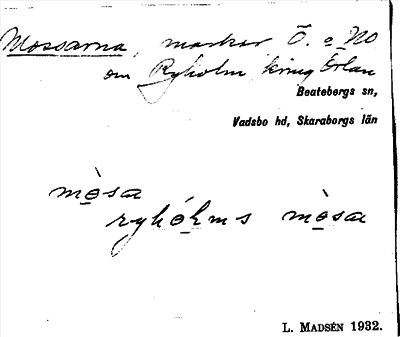 Mossarna, marker Ö. o NO
om Ryholm kring Örlan
Beatebergs sn,
Vadsbo hd, Skaraborgs län
mo̱̊sa
ryhó̱ḻms mo̱̊sa
L. MADSÉN 1932.